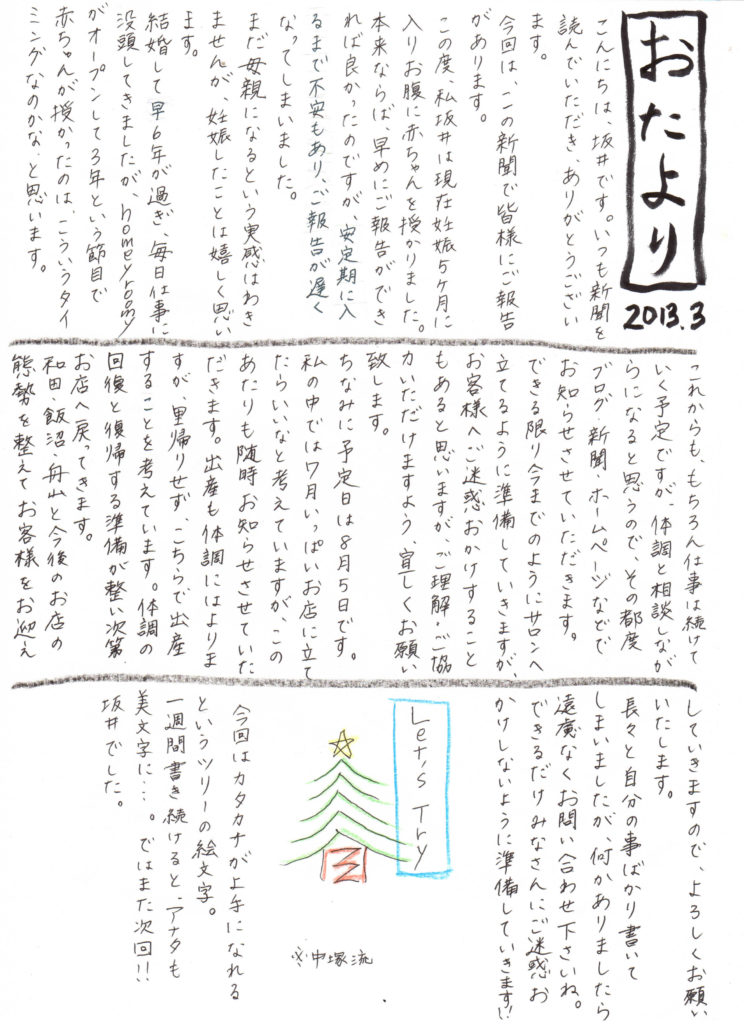 おたより
2013.3
こんにちは、坂井です。いつも新聞を
読んでいただき、ありがとうござい
ます。
今回は、この新聞で皆様にご報告
があります。
この度、私坂井は現在妊娠5ヶ月に
入りお腹に赤ちゃんを授かりました。
本来ならば、早めにご報告ができ
れば良かったのですが、安定期に入
るまで不安もあり、ご報告が遅く
なってしまいました。
まだ母親になるという実感はわき
ませんが、妊娠したことは嬉しく思い
ます。
結婚して早6年が過ぎ、毎日仕事に
没頭してきましたが、homeyroomy
がオープンして3年という節目で
赤ちゃんが授かったのは、こういうタイ
ミングなのかな、と思います。
これからも、もちろん仕事は続けて
いく予定ですが、体調と相談しなが
らになると思うので、その都度
ブログ・新聞・ホームページなどで
お知らせさせていただきます。
できる限り今までのようにサロンへ
立てるように準備していきますが、
お客様へご迷惑おかけすること
もあると思いますが、ご理解・ご協
力いただけますよう、宜しくお願い
致します。
ちなみに予定日は8月5日です。
私の中では7月いっぱいお店に立て
たらいいなと考えていますが、この
あたりも随時お知らせさせていた
だきます。出産も体調にはよりま
すが、里帰りせず、こちらで出産
することを考えています。体調の
回復と復帰する準備が整い次第
お店へ戻ってきます。
和田・飯沼・舟山と今後のお店の
態勢を整えてお客様をお迎え
していきますので、よろしくお願い
いたします。
長々と自分の事ばかり書いて
しまいましたが、何かありましたら
遠慮なくお問い合わせ下さいね。
できるだけみなさんにご迷惑お
かけしないように準備していきます!!
Let's Try
※中塚流
今回はカタカナが上手になれる
というツリーの絵文字。
一週間書き続けると、アナタも
美文字に…。ではまた次回!!
坂井でした。